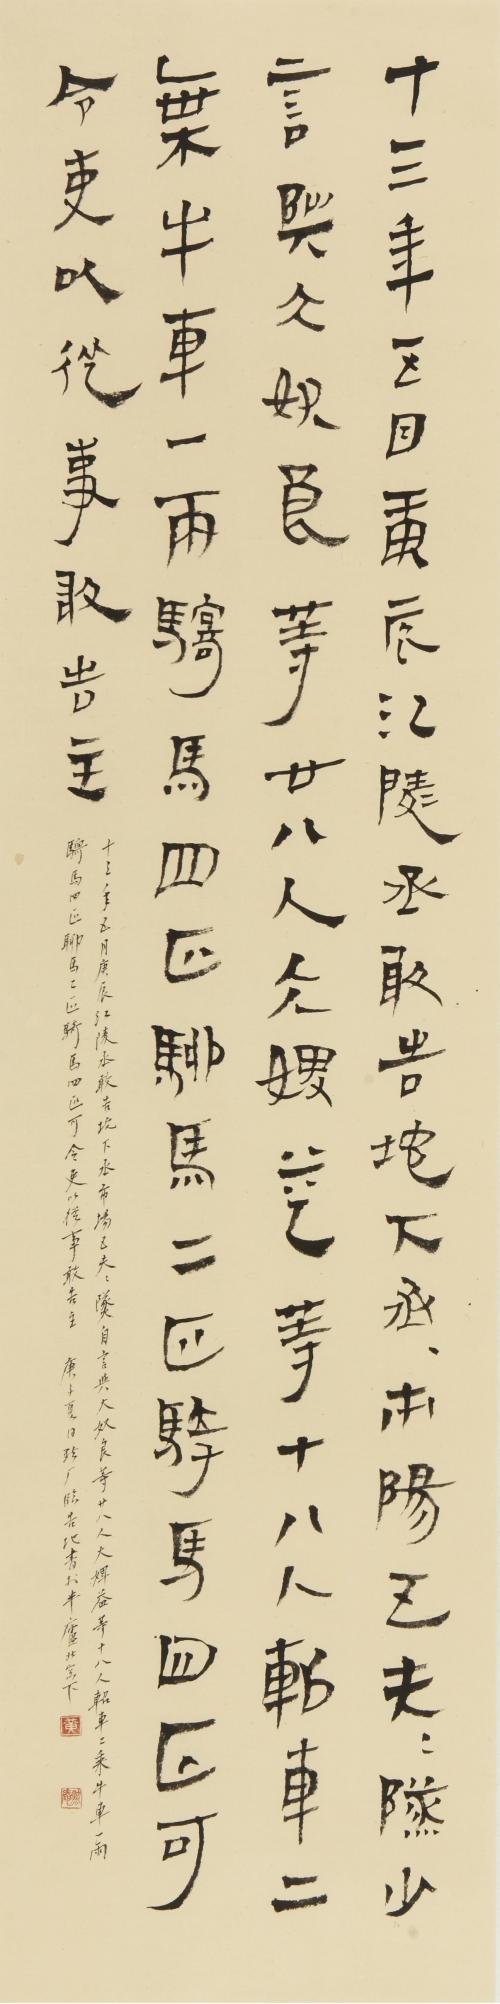 十三年五月庚辰江陵丞敢告地下丞市陽五夫=隧少
言與大奴良等廿八人大婢益等十八人軺車二
乘牛車一兩騶馬四匹駠馬二匹騎馬四匹可
令吏以從事敢告主
十三年五月庚辰江陵丞敢告地下丞市陽五夫=隧自言與大奴良等廿八人大婢益等十八人軺車二乘牛車一兩
騶馬四匹駠馬二匹騎馬四匹可令吏以從事敢告主 庚子夏日臨告地書於北窗下